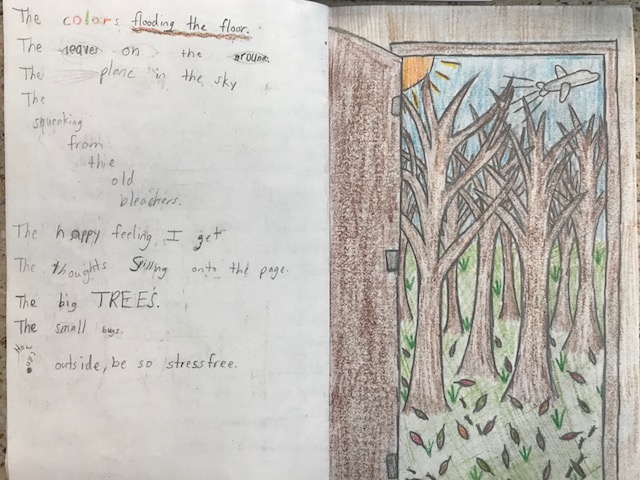 The colors flooding the floor.
The leaves on the ground.
The plane in the sky
The
squeaking
from
the
old
bleachers.
The happy feeling I get
The thoughts spilling onto the page.
The big TREES.
The small bugs.
outside, be so stressfree.